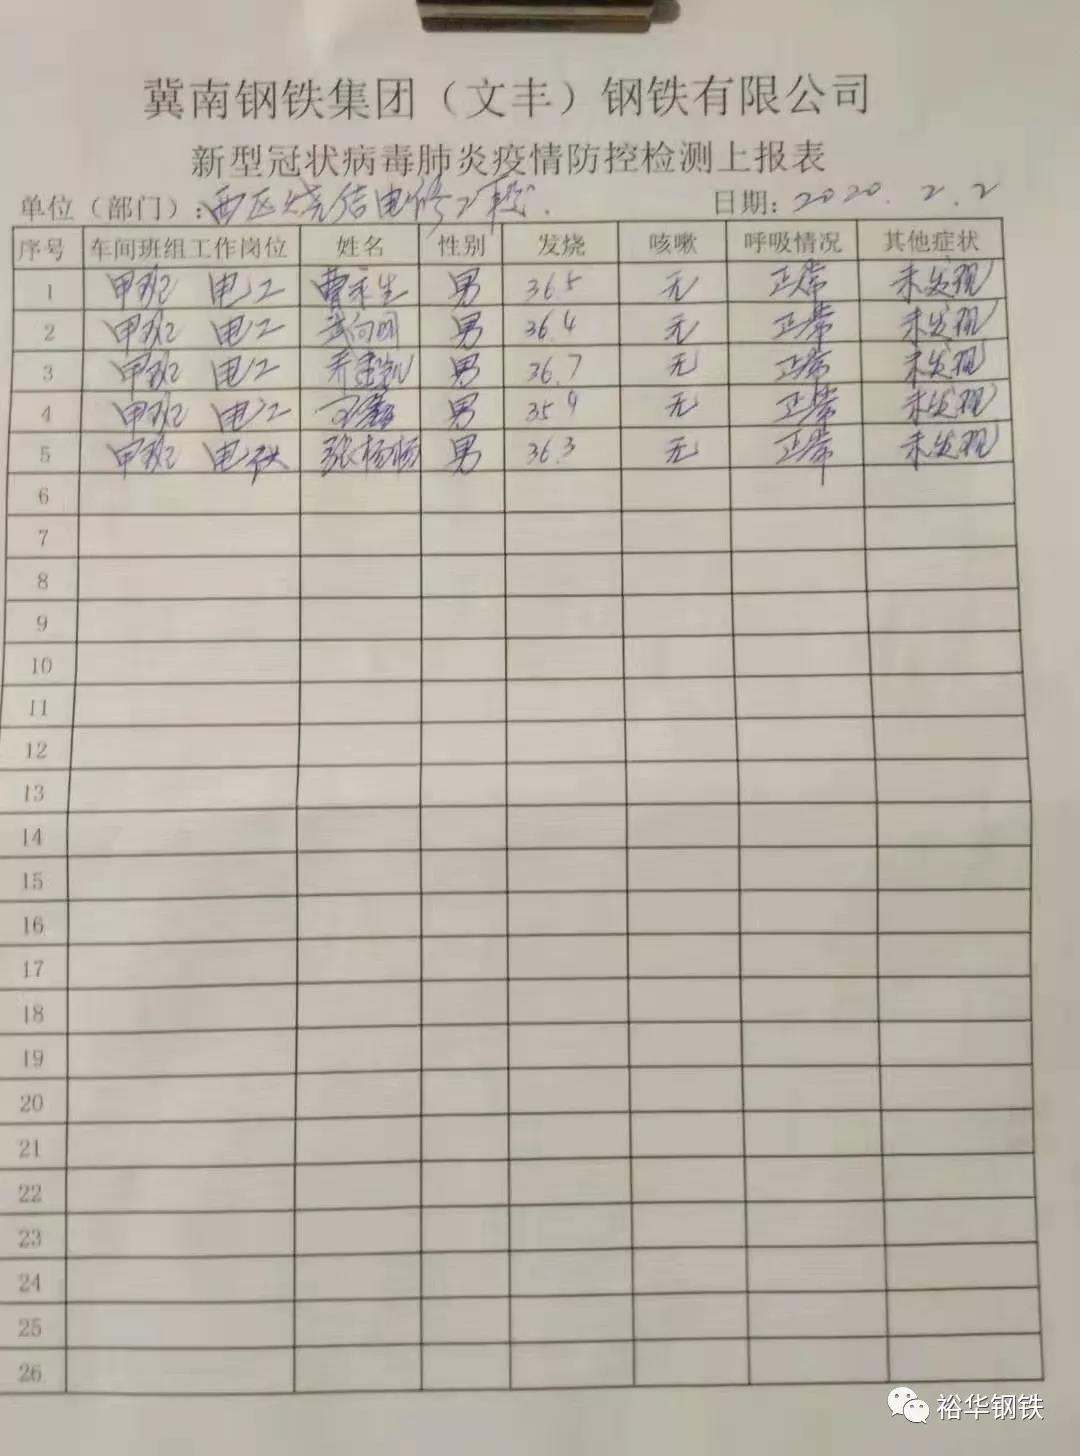 冀南钢铁集团（文丰）钢铁有限公司
新型冠状病毒肺炎疫情防控检测上报表
单位（部门）：西区烧结电修工段. 日期：2020.2.2
序号 车间班组工作岗位 姓名 性别 发烧 咳嗽 呼吸情况 其他症状
1 甲班 电工 男 36.5 无 正常 未发现
2 甲班 电工 男 36.4 无 正常 未发现
3 甲班 电工 男 36.7 无 正常 未发现
4 甲班 电工 男 35.9 无 正常 未发现
5 甲班 电 张杨杨 男 36.3 无 正常 未发现
6
7
8
9
10
11
12
13
14
15
16
17
18
19
20
21
22
23
24
25
26
裕华钢铁